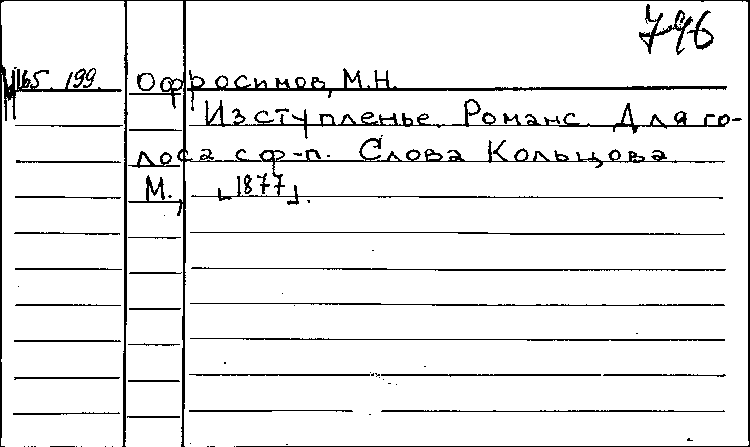 796
165. 199. Офросимов, М.Н.
Изступленье. Романс. Для го-
лоса с ф-п. Слова Кольцова
М., [1877].